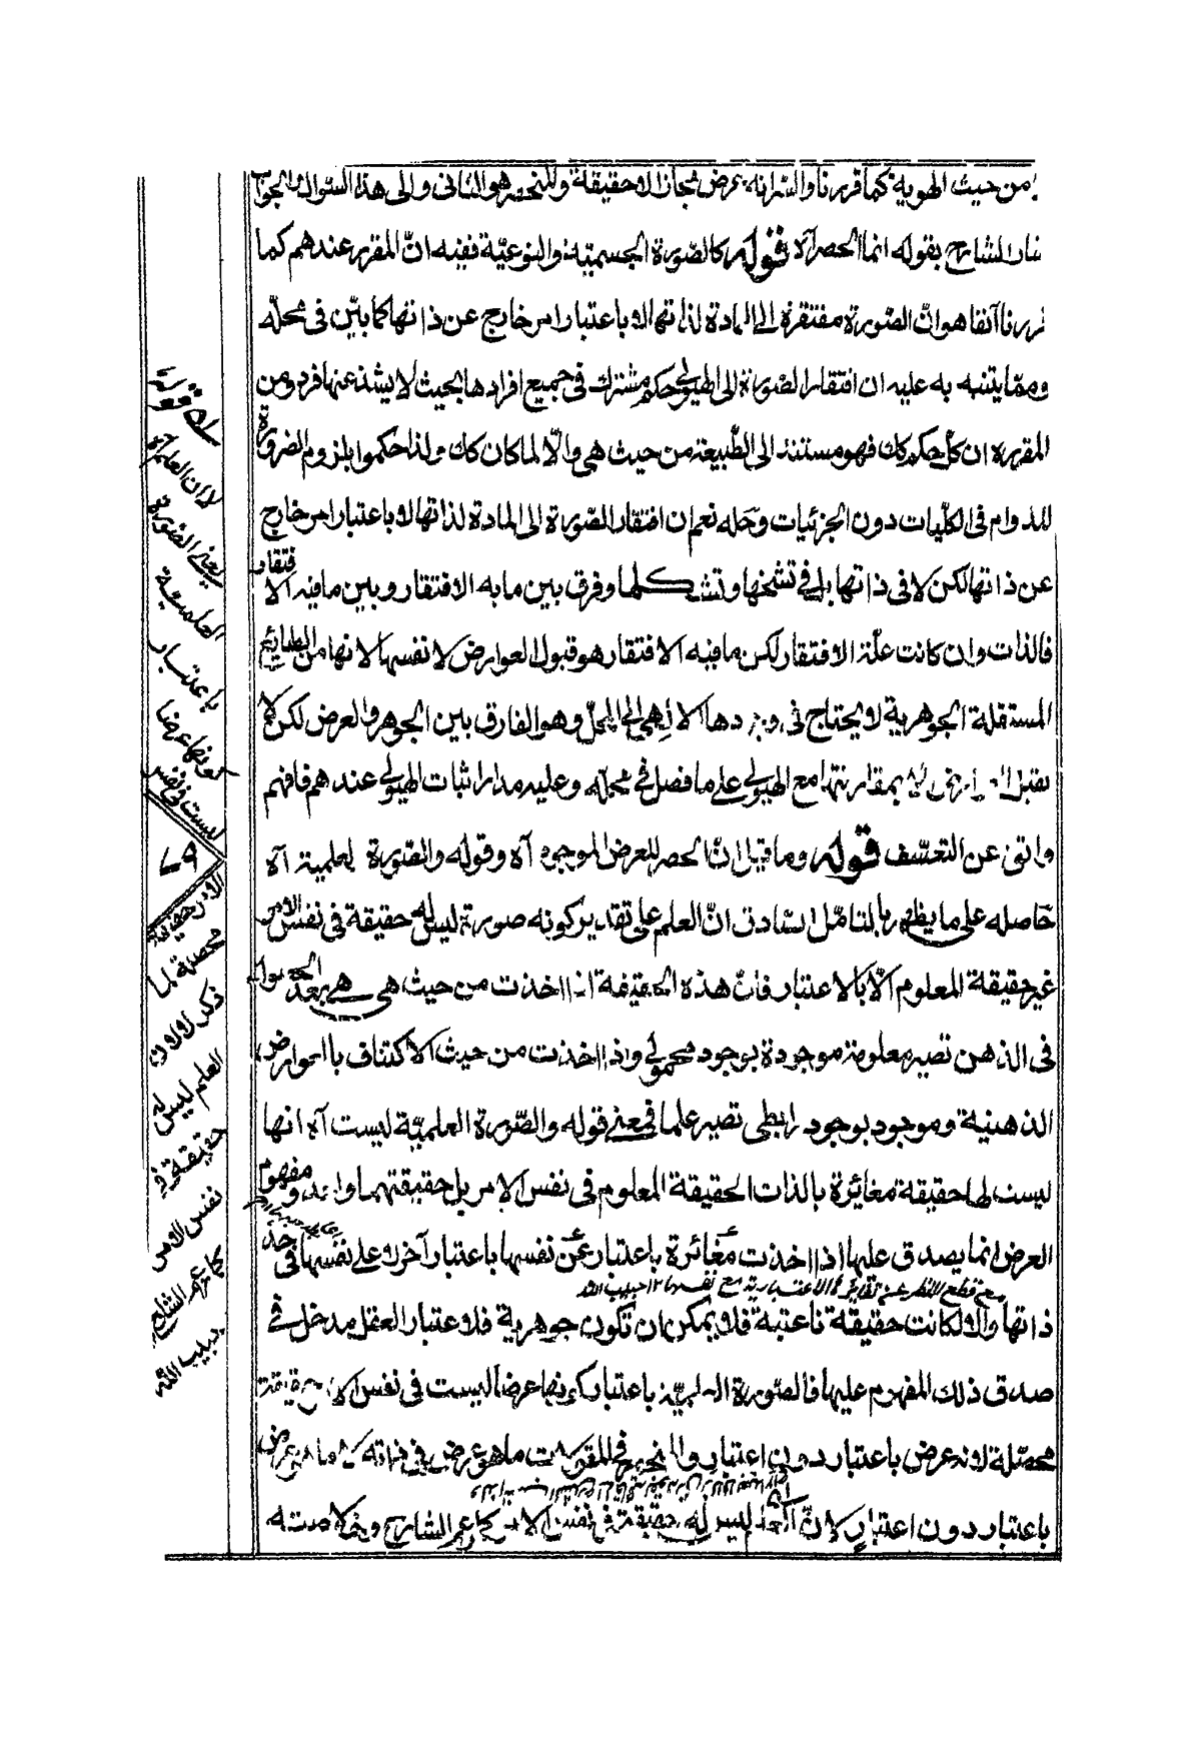 من حيث الهوية كما قررنا والشرانه بعرض مجاز الاحقيقة وللنحصر هو الثانى والى هذا السؤال والجواب
شار الشارح بقوله انما الحصر آه قوله كالصورة الجسمية والنوعية نفيه ان المقرر عندهم كما
قررنا آنفا هو ان الصورة مفتقرة الى المادة لذاتها لا باعتبار امر خارج عن ذاتها كما بيّن فى محله
ومما يتنبه به عليه ان افتقار الصورة الى الهيولى حكم مشترك فى جميع افرادها بحيث لا يشذ عنها فرد ومن
المقررة ان كل حكم كك فهو مستند الى الطبيعة من حيث هى والا لما كان كك ولذا حكموا بلزوم الضرورة
للدوام فى الكليات دون الجزئيات وحله نعم ان افتقار الصورة الى المادة لذاتها لا باعتبار امر خارج
عن ذاتها لكن لا فى ذاتها بل فى تشخصها وتشكلها وفرق بين ما به الافتقار وبين ما فيه الافتقار
فالذات وان كانت علّة الافتقار لكن ما فيه الافتقار هو قبول العوارض لا نفسها لانها من الطبائع
المستقلة الجوهرية لا يحتاج فى وجودها الا لهى الى المحل وهو الفارق بين الجوهر والعرض لكن لا
بمقارنتها مع الهيولى على ما فصل فى محله وعليه مدار اثبات الهيولى عندهم فافهم
واتق عن التعسّف قوله وما قيل ان الحصر للعرض الموجود آه وقوله والصورة لعلمية آه
حاصله على ما يظهر بالتامّل الصادق انّ العلم على تقدير كونه صورة ليس له حقيقة فى نفس الامر
غير حقيقة المعلوم الّا بالاعتبار فانّ هذه الحقيقة اذا اخذت من حيث هى هى بعد الحصول
فى الذهن تصير معلومة موجودة بوجود محمولى واذا اخذت من حيث الاكتناف بالعوارض
الذهنية وموجود بوجود رابطى تصير علما فمعنى قوله والصّورة العلميّة ليست آه انها
ليست لها حقيقة مغائرة بالذات الحقيقة المعلوم فى نفس الامر بل حقيقتهما واحد ومفهوم
العرض انما يصدق عليها اذا اخذت مغائرة باعتبار عن نفسها باعتبار آخر لا على نفسها فى حد
مع قطع النظر عن تغائر الاعتبارية مع نفسها ١٢ حبيب الله
ذاتها والا لكانت حقيقة ناعتية فلا يمكن ان تكون جوهرية فلاعتبار العقل مدخل فى
صدق ذلك المفهوم عليها فالصورة العلمية باعتبار كونها عرضا ليست فى نفس الامر حقيقة
محصّلة لانه عرض باعتبار دون اعتبار والمنحصر فى المقولات ما هو عرض فى ذاته لا ما هو عرض
باعتبار دون اعتبار لان ليس له حقيقة فى نفس الامر كما زعم الشارح
قوله
لا ان العلم
يعنى الصورة
العلمية
باعتبار
كونها عرضا
ليست فى نفس
٧٩
الامر حقيقة
محصلة لما
ذكر لا لان
العلم ليس له
حقيقة فى
نفس الامر
كما زعم الشارح
حبيب الله